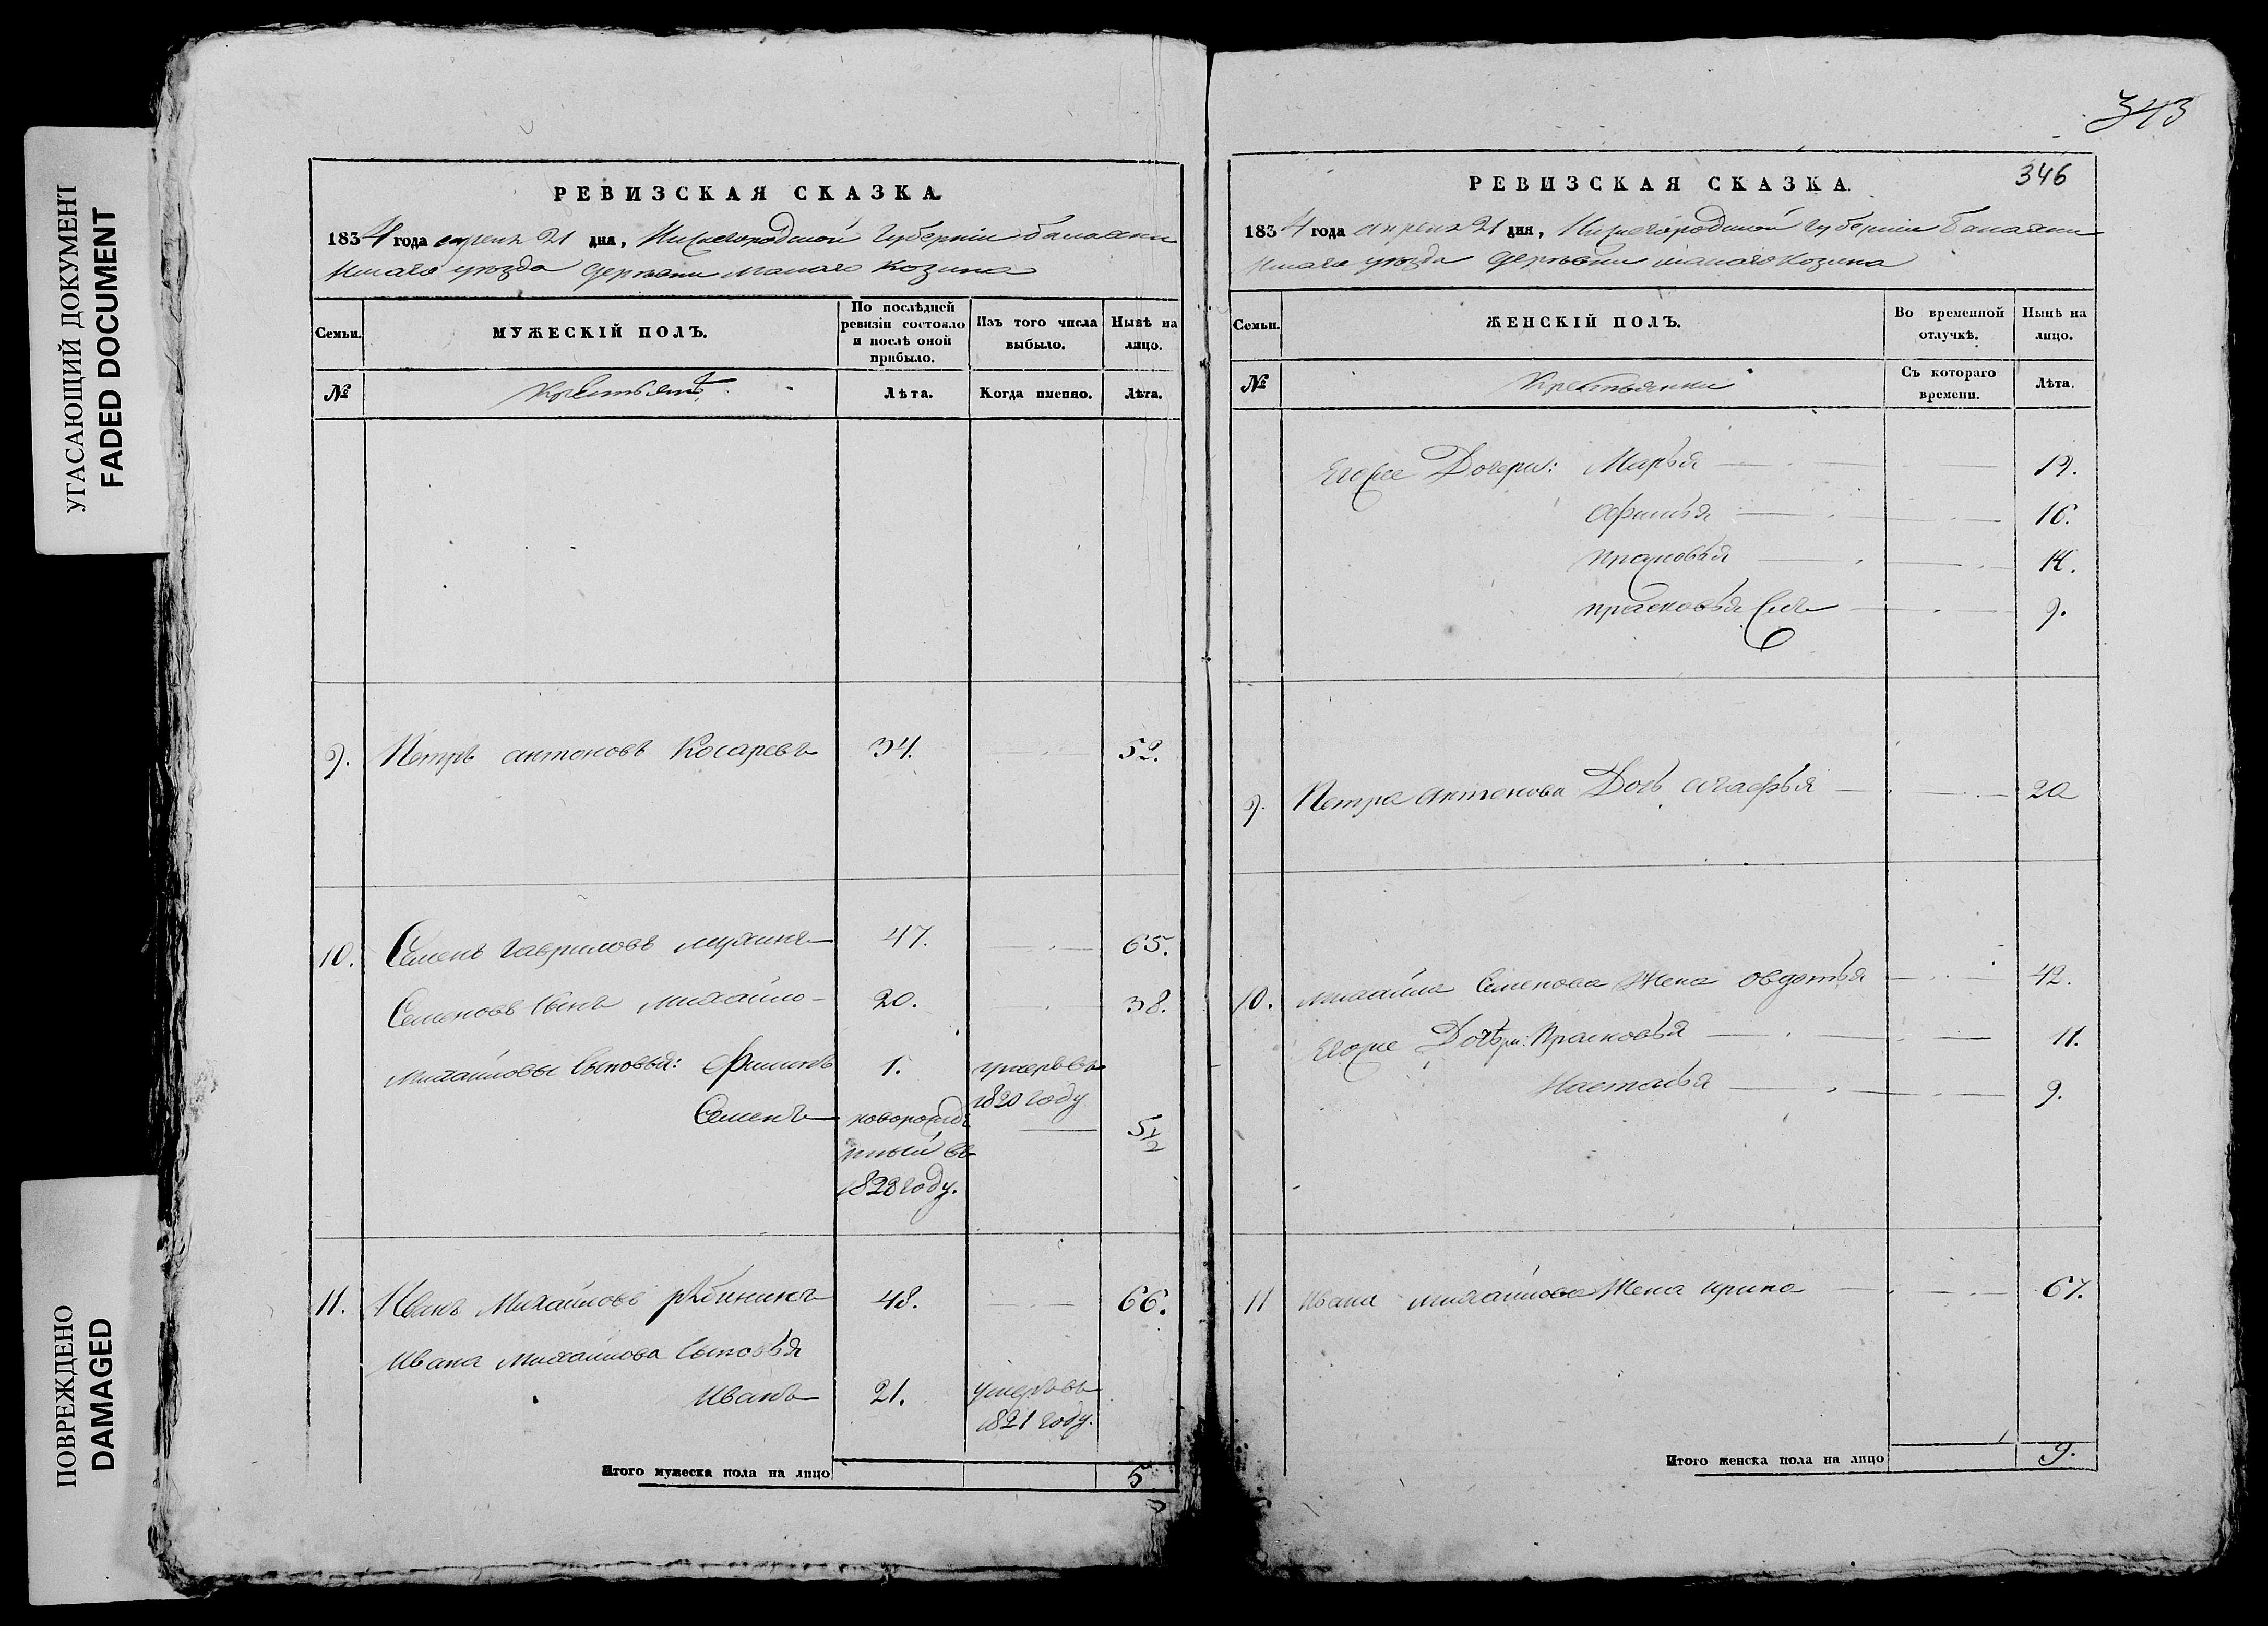 УГАСАЮЩИЙ ДОКУМЕНТ
FADED DOCUMENT
ПОВРЕЖДЕНО
DAMAGED
РЕВИЗСКАЯ СКАЗКА.
1834 года апреля 21 дня, Нижегородской Губернiи балахни
нскаго уѣзда Деревни малаго козина
Семьи.
МУЖЕСКIЙ ПОЛЪ.
По послѣдней ревизiи состояло и послѣ оной прибыло.
Изъ того числа выбыло.
Нынѣ на лицо.
№
Крестьянъ
Лѣта.
Когда именно.
Лѣта.
9. Петръ антоновъ Косаревъ 34. 52.
10. Семенъ гавриловъ мухинъ 47. 65.
Семеновъ сынъ михайло 20. 38.
михайловы сыновья: Филипъ 1. умеръ въ
1820 году
Семенъ новорожде
нный въ
1828 году.
5 1/2
11. Иванъ Михайловъ рябининъ 48. 66.
Ивана михайлова сыновья
Иванъ 21. умеръ въ
1821 году.
Итого мужеска пола на лицо 5
343
346
РЕВИЗСКАЯ СКАЗКА.
1834 года апреля 21 дня, Нижегородской губернiи балахни
нскаго уѣзда Деревни малаго козина
Семьи.
ЖЕНСКIЙ ПОЛЪ.
Во временной отлучкѣ.
Нынѣ на лицо.
№
Крестьянки
Съ котораго времени.
Лѣта.
Егоже Дочери: Марья 19.
Афимья 16.
прасковья 14.
прасковья же 9.
9. Петра антонова Дочь агафья 20
10. михайла Семенова Жена овдотья 42.
Егоже Дочѣри: Прасковья 11.
Насталья 9.
11 Ивана михайлова Жена ирина 67.
Итого женска пола на лицо 9.